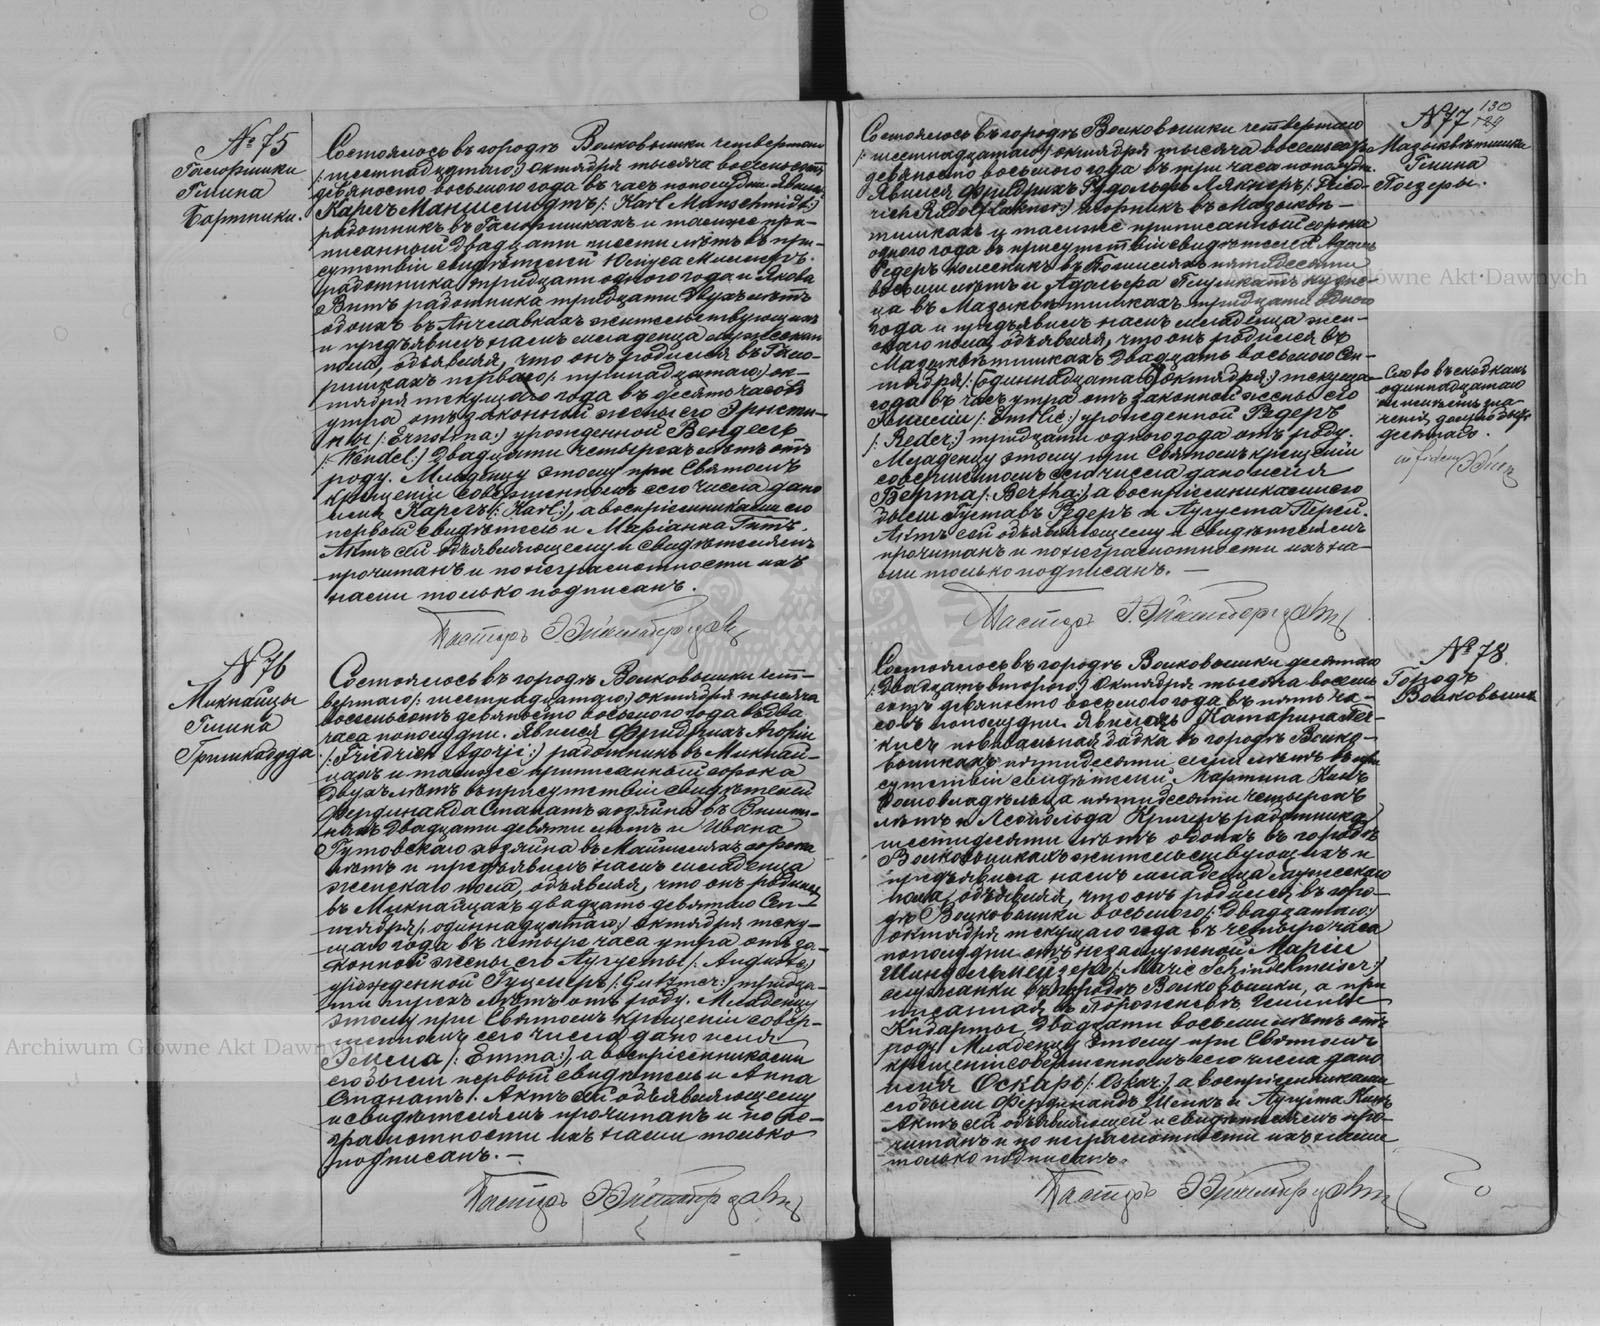 № 75
Гаспоришки
Гмина
Бартники.
Состоялось въ городѣ Волковышки четвертаго
/: шестнадцатаго :/ октября тысяча восемьсотъ
девяносто восьмого года въ часъ пополудни. Явился
Карлъ Маншмидтъ /: Karl Manschmidt :/
работникъ въ и тамже при-
писанный двадцати шести лѣтъ въ при-
сутствіи свидѣтелей Юліуса
работника тридцати одного года и Якова
Витъ работника тридцати двухъ лѣтъ
обоихъ въ жительствующихъ
и предъявилъ намъ младенца мужескаго
пола, объявляя, что онъ родился въ Гаспо-
ришкахъ перваго /: тринадцатаго :/ ок-
тября текущаго года въ десять часовъ
утра отъ законной жены его Эрнсти-
ны /: Ernstina :/ урожденной Вендель
/: Wendel :/ двадцати четырехъ лѣтъ отъ
роду. Младенцу этому при Святомъ
крещеніи совершенномъ сего числа дано
имя Карлъ /: Karl :/, а воспріемниками его
первый свидѣтель и Маріанна
Актъ сей объявляющему и свидѣтелямъ
прочитанъ и по неграмотности ихъ
нами только подписанъ.
Пасторъ
№ 76
Микнайцы
Гмина
Гришкабуда
Состоялось въ городѣ Волковышки чет-
вертаго /: шестнадцатаго :/ октября тысяча
восемьсотъ девяносто восьмого года въ два
часа пополудни. Явился Фридрихъ
/: Friedrich :/ работникъ въ Микнай-
цахъ и тамже приписанный сорока
двухъ лѣтъ въ присутствіи свидѣтелей
Фердинанда хозяина въ
двадцати девяти лѣтъ и Ивана
Гутовскаго хозяина въ сорока
лѣтъ и предъявилъ намъ младенца
женскаго пола, объявляя, что онъ родился
въ Микнайцахъ двадцать девятаго Сен-
тября /: одиннадцатаго :/ октября теку-
щаго года въ четыре часа утра отъ за-
конной жены его Августы
урожденной Гуцмеръ /: Gutzmer :/ тридца-
ти трехъ лѣтъ отъ роду. Младенцу
этому при Святомъ крещеніи совер-
шенномъ сего числа дано имя
Эмма /: Emma :/, а воспріемниками
его были первый свидѣтель и Анна
Актъ сей объявляющему
и свидѣтелямъ прочитанъ и по не-
грамотности ихъ нами только
подписанъ. —
Пасторъ
130
129
№ 77
Гмина
Поезеры.
Состоялось въ городѣ Волковышки четвертаго
/: шестнадцатаго :/ октября тысяча восемьсотъ
девяносто восьмого года въ три часа пополудни.
Явился Фридрихъ Рудольфъ Лякнеръ /: Fried-
rich Rudolf Lakner :/
и тамже приписанный сорока
одного года въ присутствіи свидѣтелей Адама
Редеръ колесникъ въ пятидесяти
восьми лѣтъ и Адольфа кузне-
ца въ тридцати одного
года и предъявилъ намъ младенца жен-
скаго пола, объявляя, что онъ родился въ
двадцать восьмого Сен-
тября /: одиннадцатаго :/ октября :/ текущаго
года въ часъ утра отъ законной жены его
Эмиліи /: Emilie :/ урожденной Редеръ
/: Reder :/ тридцати одного года отъ роду.
Младенцу этому при Святомъ крещеніи
совершенномъ сего числа дано имя
Берта /: Bertha :/, а воспріемниками его
были Густавъ Редеръ и Августа
Актъ сей объявляющему и свидѣтелямъ
прочитанъ и по неграмотности ихъ на-
ми только подписанъ. —
Пасторъ
Слово въ скобкахъ
одиннадцатаго
in fidem
№ 78
Городъ
Волковышки
Состоялось въ городѣ Волковышки десятаго
/: двадцать второго :/ Октября тысяча восемь-
сотъ девяносто восьмого года въ пять ча-
совъ пополудни. Явилась Катарина
повивальная бабка въ городѣ Волко-
вышкахъ пятидесяти семи лѣтъ въ при-
сутствіи свидѣтелей Мартина
домовладѣльца пятидесяти четырехъ
лѣтъ и Леопольда Кригеръ работника
шестидесяти лѣтъ обоихъ въ городѣ
Волковышкахъ жительствующихъ и
предъявила намъ младенца мужескаго
пола, объявляя, что онъ родился въ горо-
дѣ Волковышки восьмого /: двадцатаго :/
октября текущаго года въ четыре часа
пополудни отъ незамужней Маріи
Шиндельмейзеръ /: Marie Schindelmeiser :/
служанки въ городѣ Волковышки, а при-
писанная въ Гмины
Кибарты двадцати восьми лѣтъ отъ
роду. Младенцу этому при Святомъ
крещеніи совершенномъ сего числа дано
имя Оскаръ /: Oskar :/ а воспріемниками
его были Фердинандъ Шенкъ и Августа
Актъ сей объявляющей и свидѣтелямъ про-
читанъ и по неграмотности ихъ нами
только подписанъ.
Пасторъ
Archiwum Główne Akt Dawnych
Archiwum Główne Akt Dawnych